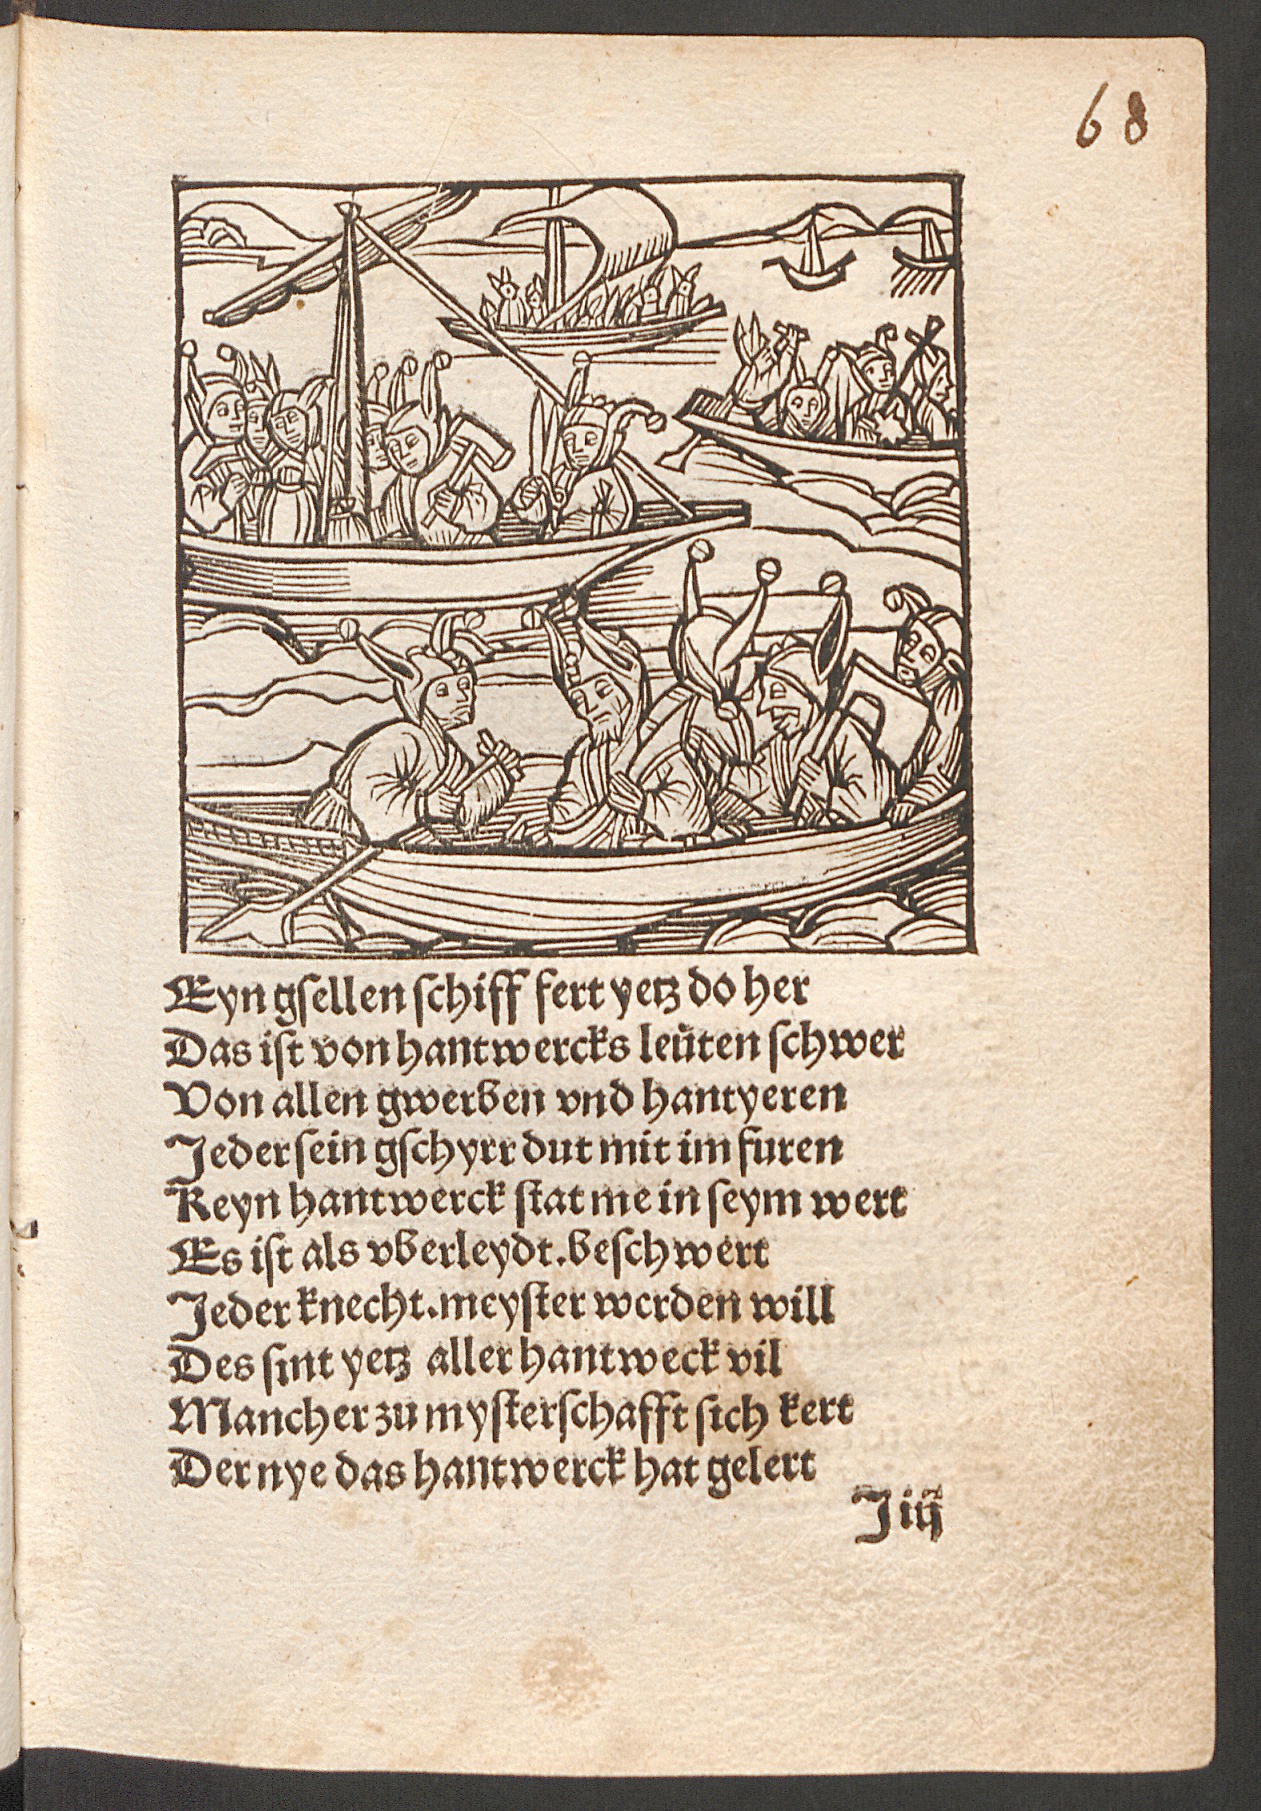 68
Eyn gſellen ſchiff fert yetz do her
Das iſt von hantwercks leüten ſchwer
Von allen gwerben vnd hantyeren
Jeder ſein gſchyrr dut mit im furen
Keyn hantwerck ſtat me in ſeym wert
Es iſt als vberleydt. beſchwert
Jeder knecht. meyſter werden will
Des ſint yetz aller hantweck vil
Mancher zu myſterſchafft ſich kert
Der nye das hantwerck hat gelert
J iij